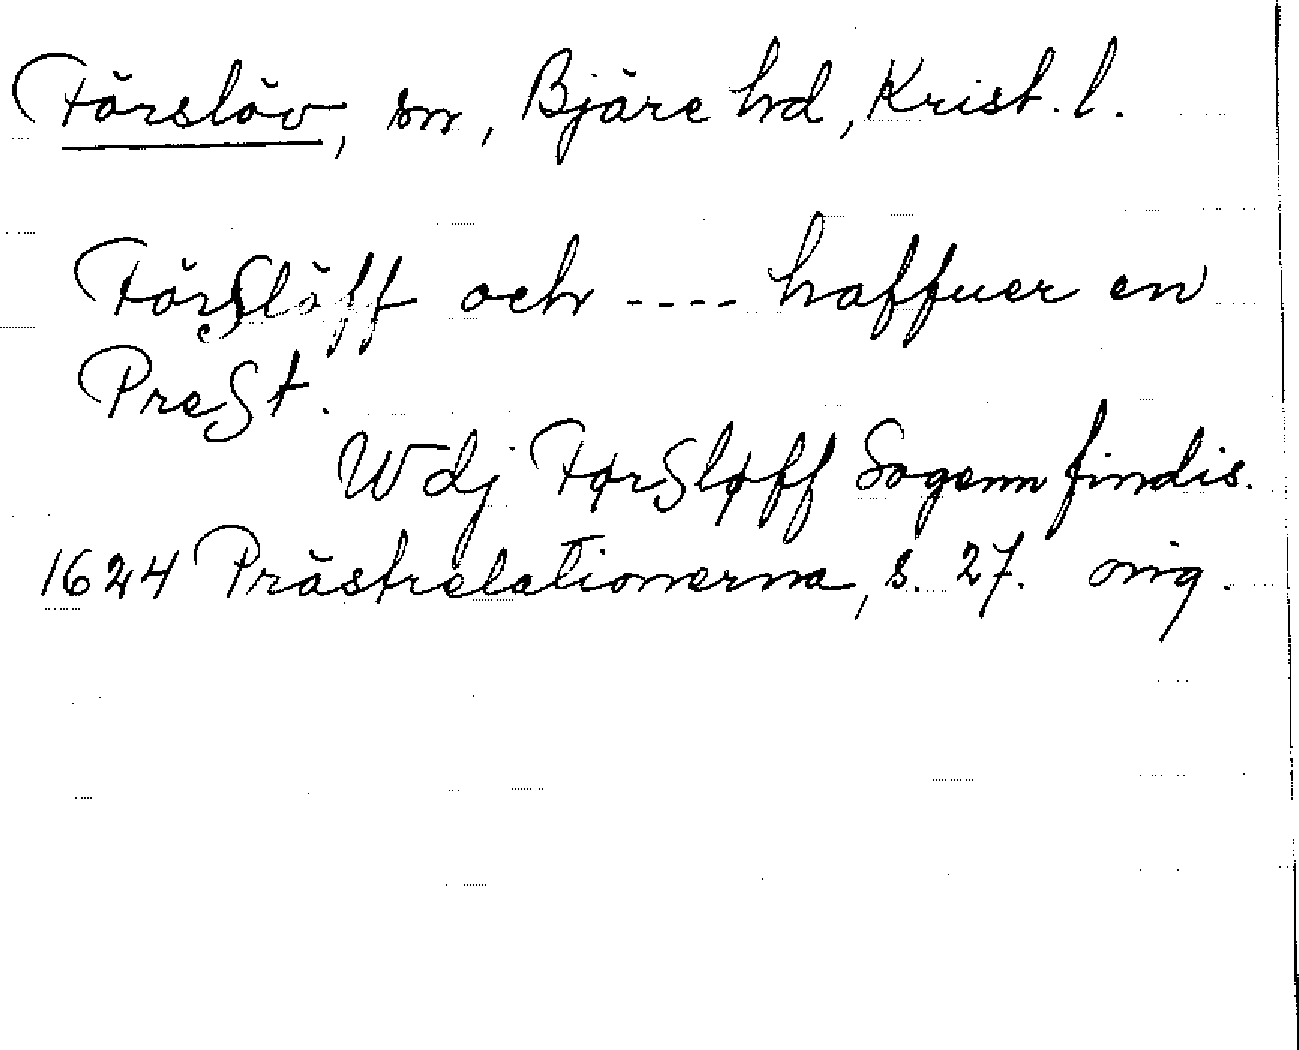 Förslöv, sn, Bjäre hd, Krist. l.
FörSlöff och ---- haffuer en
PreSt.
Wdj FørSløff Sogenn findis.
1624 Prästrelationerna, s. 27. orig.